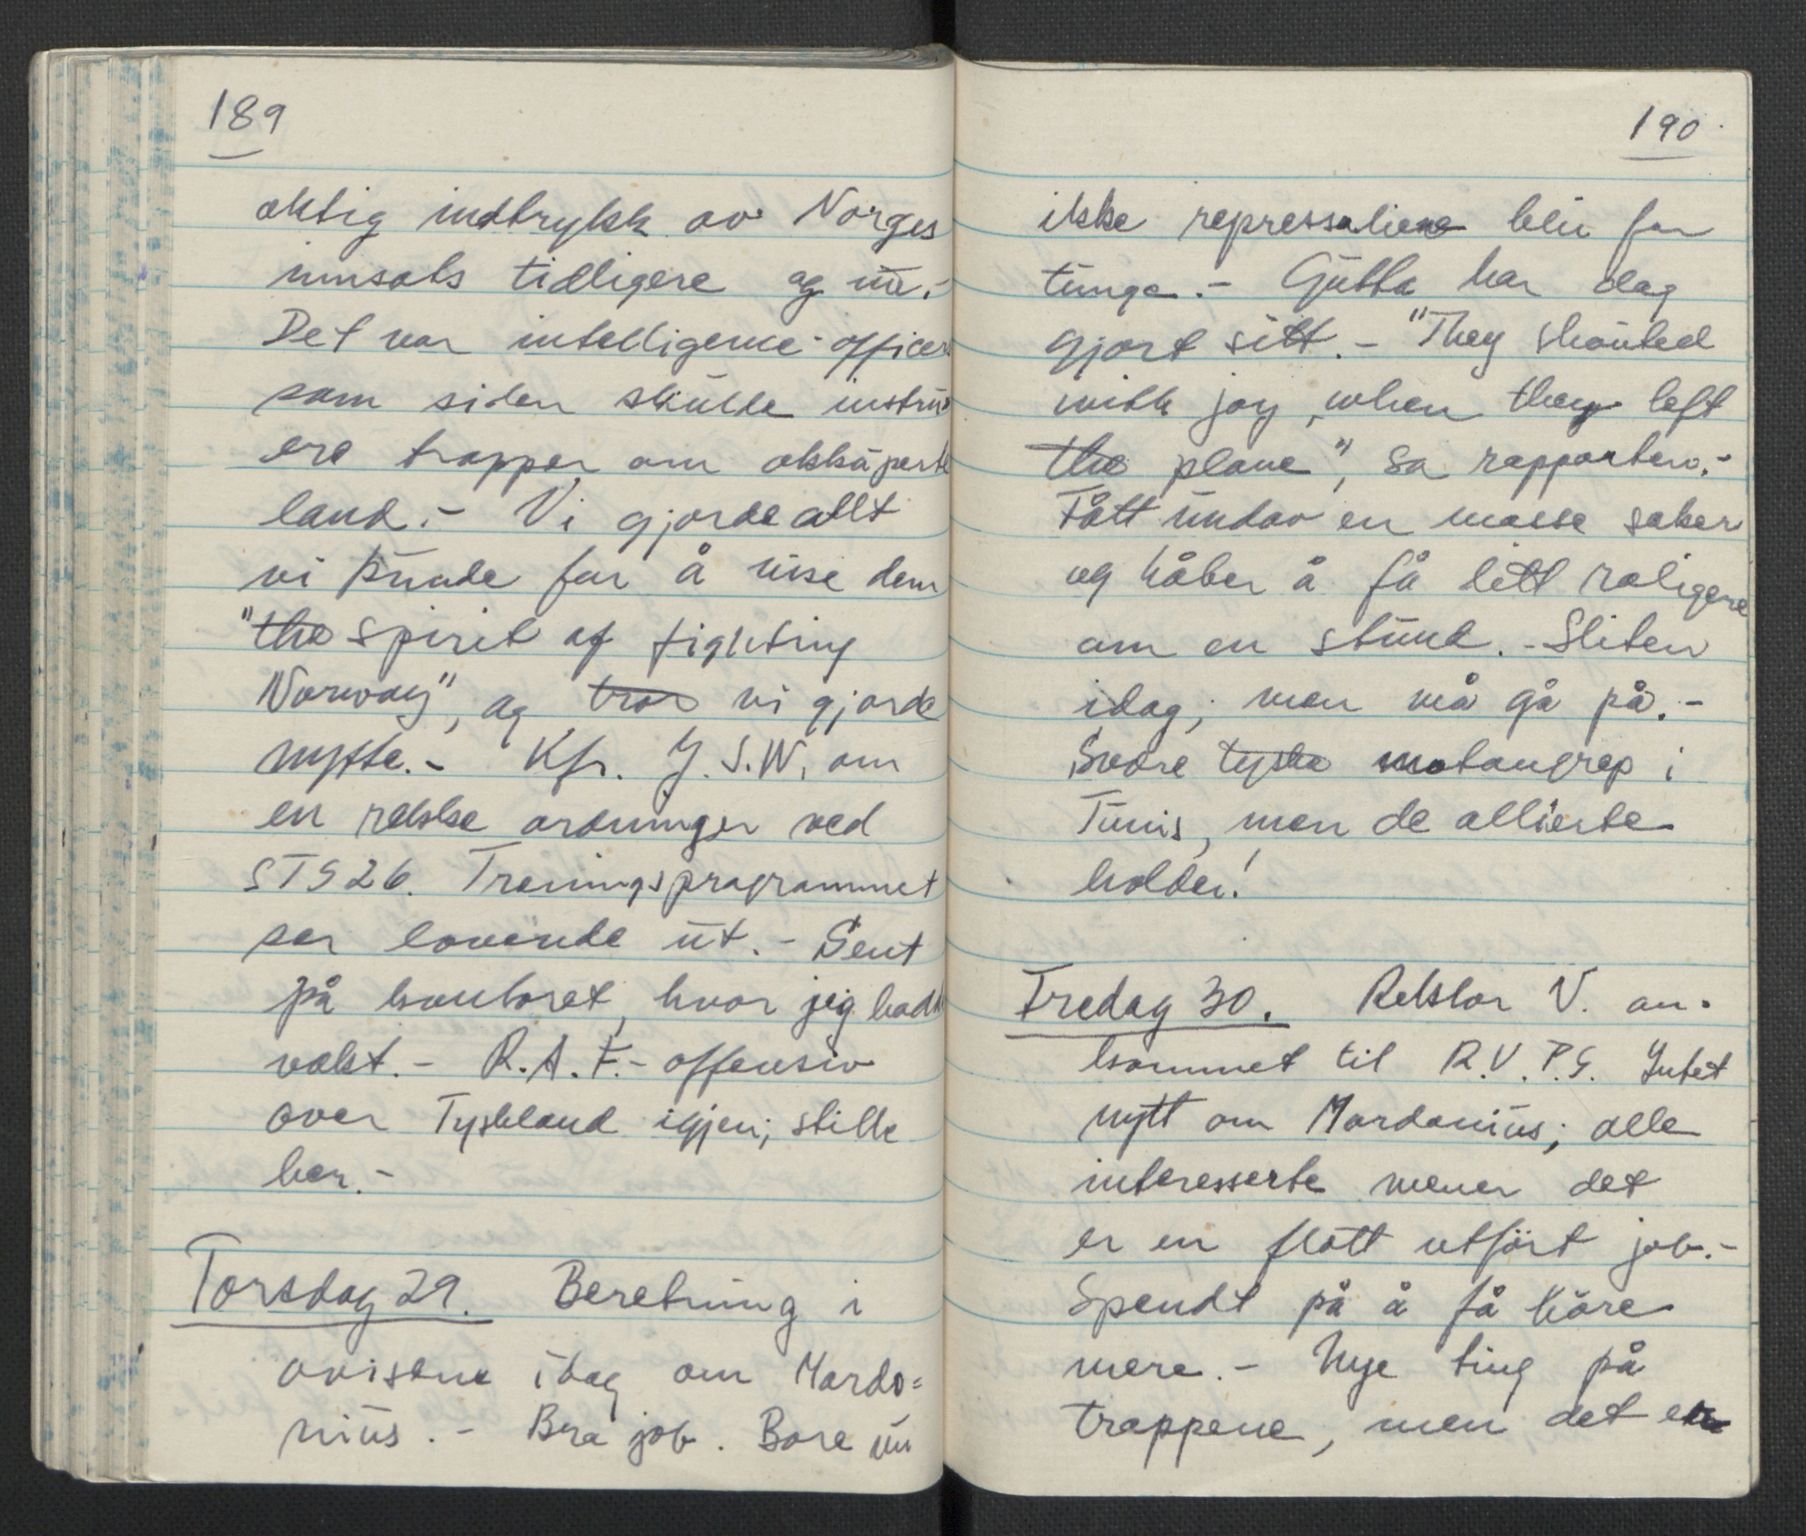 189
aktig indtrykk av Norges
innsats tidligere og nu.-
Det var intelligence-officers
som siden skulde instru-
ere tropper om okkuperte
land.- Vi gjorde allt
vi kunde for å vise dem
"the spirit of fighting
Norway", og tror vi gjorde
nytte.- Kfr. J.S.W. om
en rekke ordninger ved
STS 26. Treningsprogrammet
ser lovende ut.- Sent
på kontoret, hvor jeg hadde
vakt.- R.A.F.- offensiv
over Tyskland igjen; stille
her.-
Torsdag 29. Beretning i
avisene idag om Mardo=
nius.- Bra job. Bare nu
190
ikke repressaliene blir for
tunge.- Gutta har dog
gjort sitt.- "They shouted
with joy, when they left
the plane", sa rapporten.-
Fått undav en masse saker
og håber å få litt roligere
om en stund.- Sliten
idag, men må gå på.-
Svære tyske motangrep i
Tunis, men de allierte
holder!
Fredag 30. Rektor V. an-
kommet til R.V.P.S. Intet
nytt om Mardonius; alle
interesserte mener det
er en flott utført job.-
Spendt på å få høre
mere.- Nye ting på
trappene, men det er